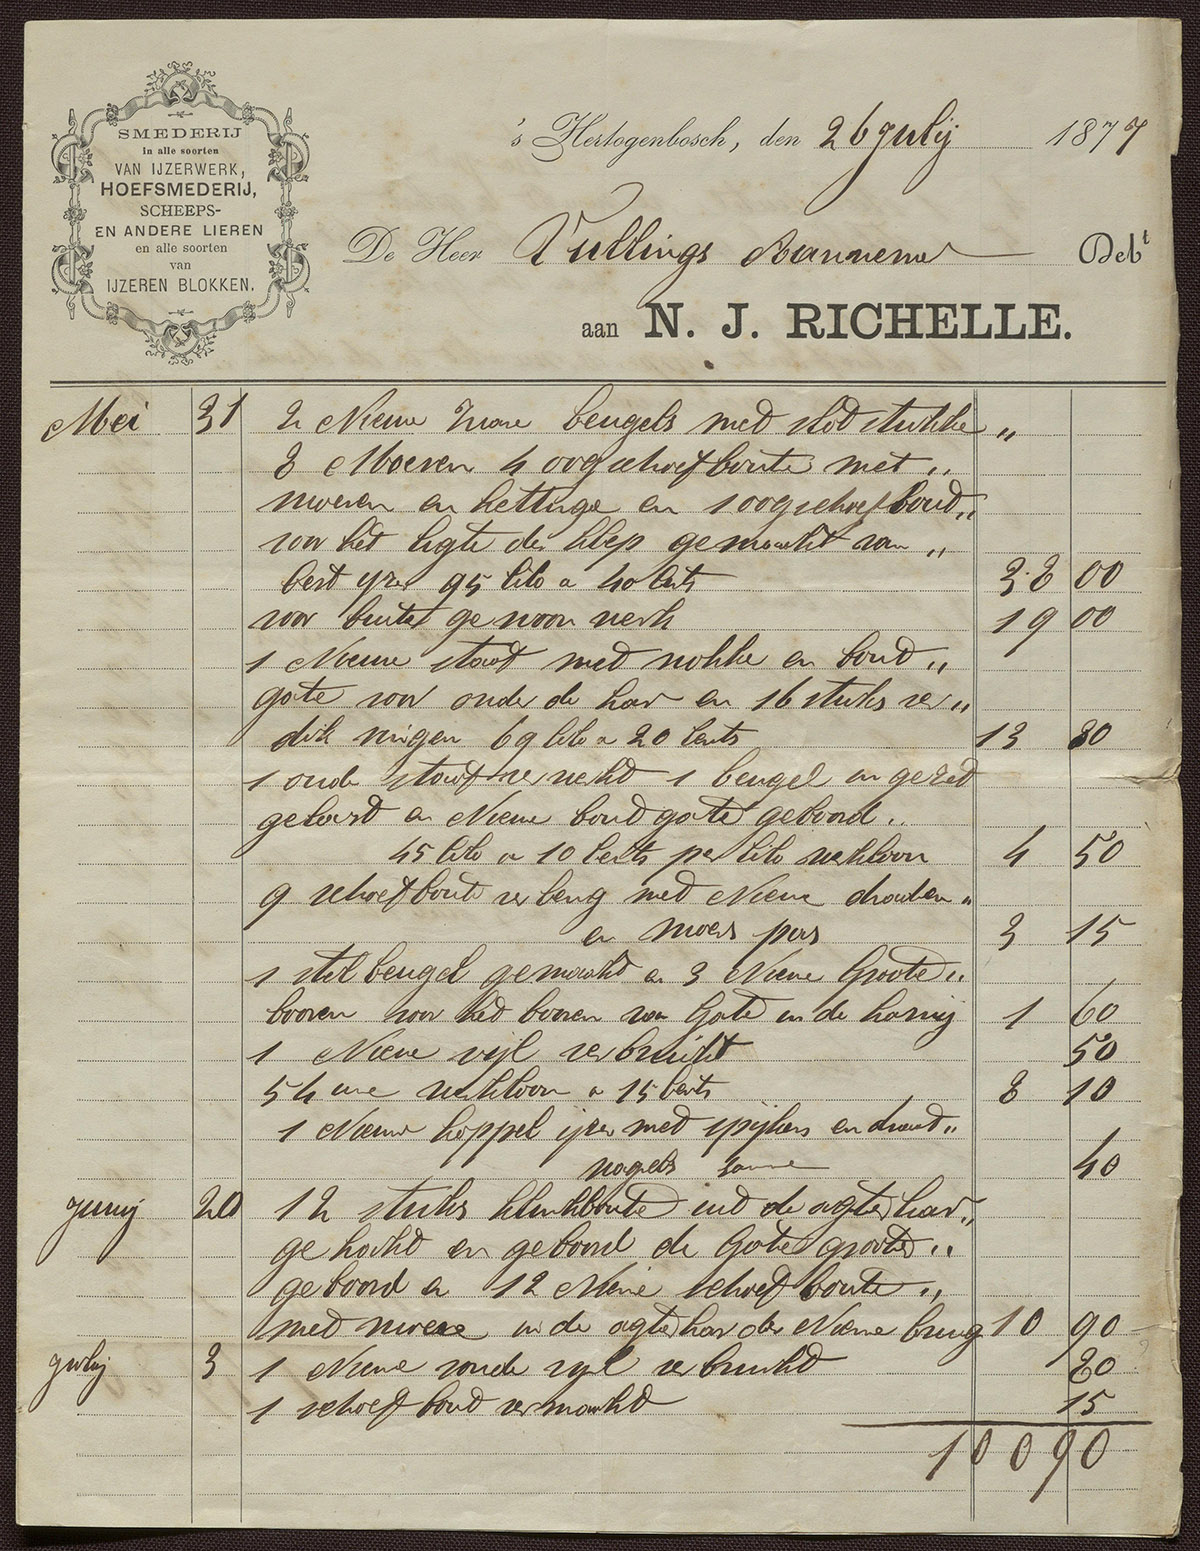 SMEDERIJ
in alle soorten
VAN IJZERWERK,
HOEFSMEDERIJ,
SCHEEPS-
EN ANDERE LIEREN
en alle soorten
van
IJZEREN BLOKKEN.
's Hertogenbosch, den 26 Julij 1877
De Heer Vullings Aannemer Debt
aan N. J. RICHELLE.
Mei 31 2 Nieuwe beugels med slod stukke „
8 Moeren 4 oogschoefboute met „
moeren en kettinge en 1 oogschoefboud „
voor het ligte der klep gemaakt van „
best yzer 95 kilo a 40 Cents 38 00
voor buite ge woon werk 19 00
1 Nieuwe staaf med nokke en boud „
gate voor onder de kar en 16 stuks ver „
dik ringen 69 kilo a 20 Cents 13 80
1 oude staaf ver werkt 1 beugel
en Nieuwe boud gate geboord „
45 kilo a 10 Cents per kilo werkloon 4 50
9 schoefboute ver leng med Nieuwe draaden „
en moers 3 15
1 stel beugel gemaakt en 3 Nieuwe Groote „
booren voor hed booren van Gate in de 1 60
1 Nieuwe vijl verbruikt 50
54 ure werkloon a 15 Cents 8 10
1 Nieuw koppel ijzer med spijkers en draad „
nagels 40
Junij 20 12 stuks klinkboute uit de agter kar „
ge hakt en geboord de Gate grooter „
geboord en 12 Nieuwe schoef boute „
med moere in de agter kar der Nieuwe brug 10 90
Julij 3 1 Nieuwe ronde vyl verbruikt 80
1 schoef boud vermaakt 15
100 90